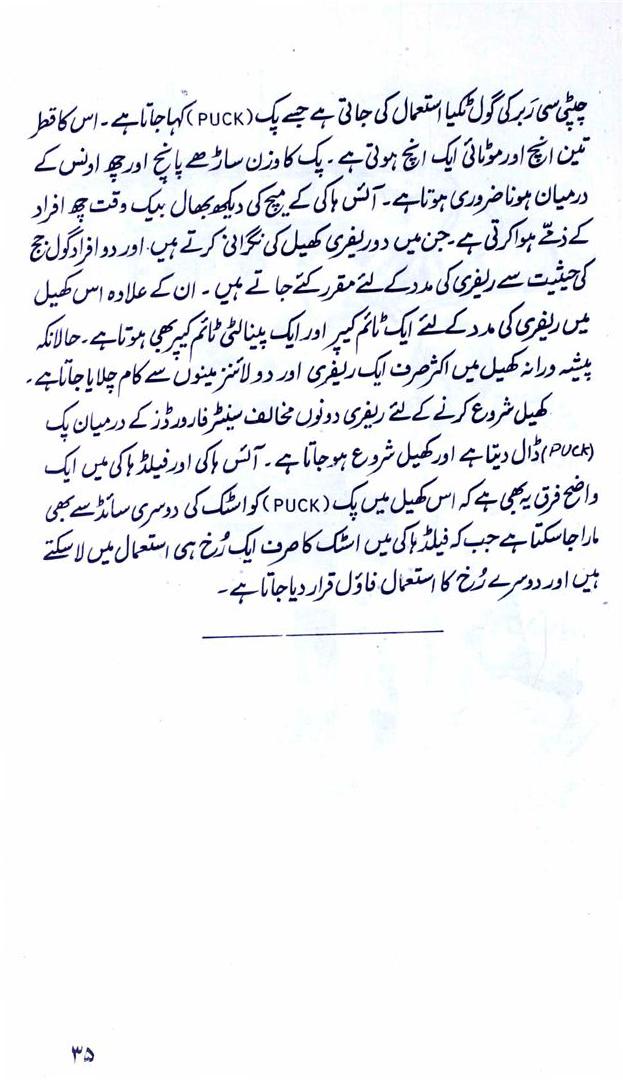 چپٹی سی ربر کی گول ٹکیا استعمال کی جاتی ہے جسے پک (PUCK) کہا جاتا ہے۔ اس کا قطر
تین انچ اور موٹائی ایک انچ ہوتی ہے۔ پک کا وزن ساڑھے پانچ اور چھ اونس کے
درمیان ہونا ضروری ہوتا ہے۔ آئس ہاکی کے میچ کی دیکھ بھال بیک وقت چھ افراد
کے ذمّے ہوا کرتی ہے۔ جن میں دو ریفری کھیل کی نگرانی کرتے ہیں اور دو افراد گول جج
کی حیثیت سے ریفری کی مدد کے لئے مقرر کئے جاتے ہیں۔ ان کے علاوہ اس کھیل
میں ریفری کی مدد کے لئے ایک ٹائم کیپر اور ایک پینالٹی ٹائم کیپر بھی ہوتا ہے۔ حالانکہ
پیشہ ورانہ کھیل میں اکثر صرف ایک ریفری اور دو لائنز مینوں سے کام چلایا جاتا ہے۔
کھیل شروع کرنے کے لئے ریفری دونوں مخالف سینٹر فارورڈز کے درمیان پک
(PUCK) ڈال دیتا ہے اور کھیل شروع ہو جاتا ہے۔ آئس ہاکی اور فیلڈ ہاکی میں ایک
واضح فرق یہ بھی ہے کہ اس کھیل میں پک (PUCK) کو اسٹک کی دوسری سائڈ سے بھی
مارا جا سکتا ہے جب کہ فیلڈ ہاکی میں اسٹک کا صرف ایک رُخ ہی استعمال میں لا سکتے
ہیں اور دوسرے رُخ کا استعمال فاؤل قرار دیا جاتا ہے۔
۳۵